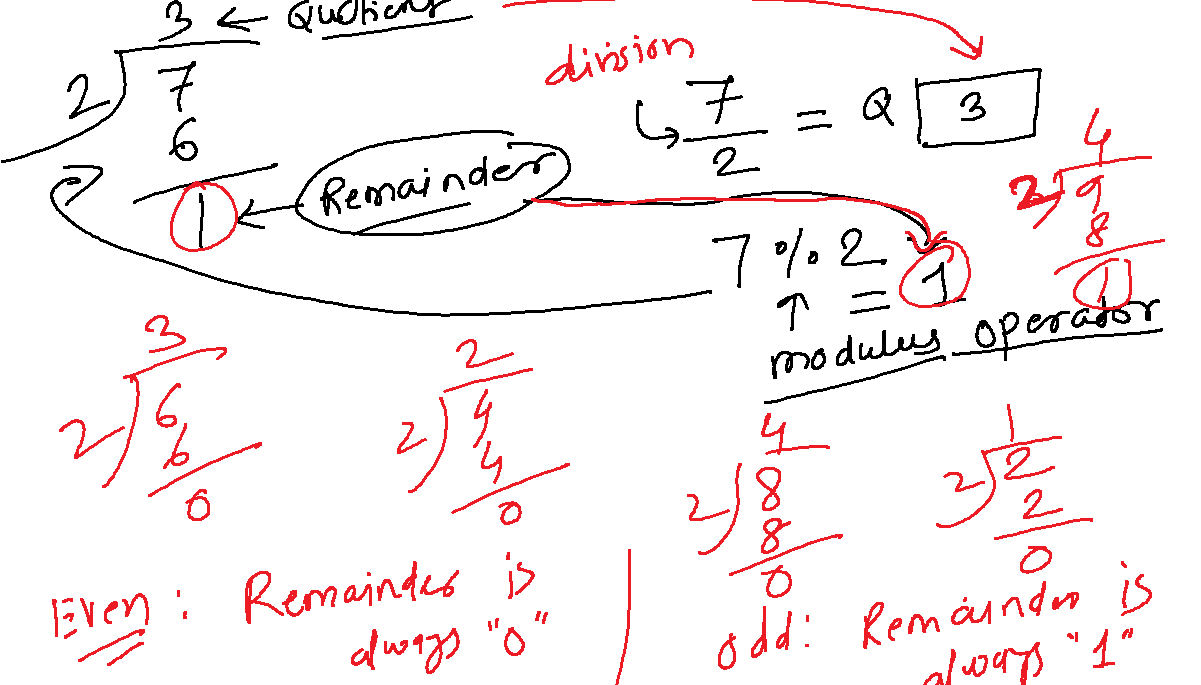 3 ← Quotient
2 7
6
1 ← Remainder
division
7/2 = Q 3
7 % 2
= 1
↑
modulus operador
4
2 9
8
1
3
2 6
6
0
2
2 4
4
0
4
2 8
8
0
1
2 2
2
0
Even : Remainder is
always "0"
odd : Remainder is
always "1"